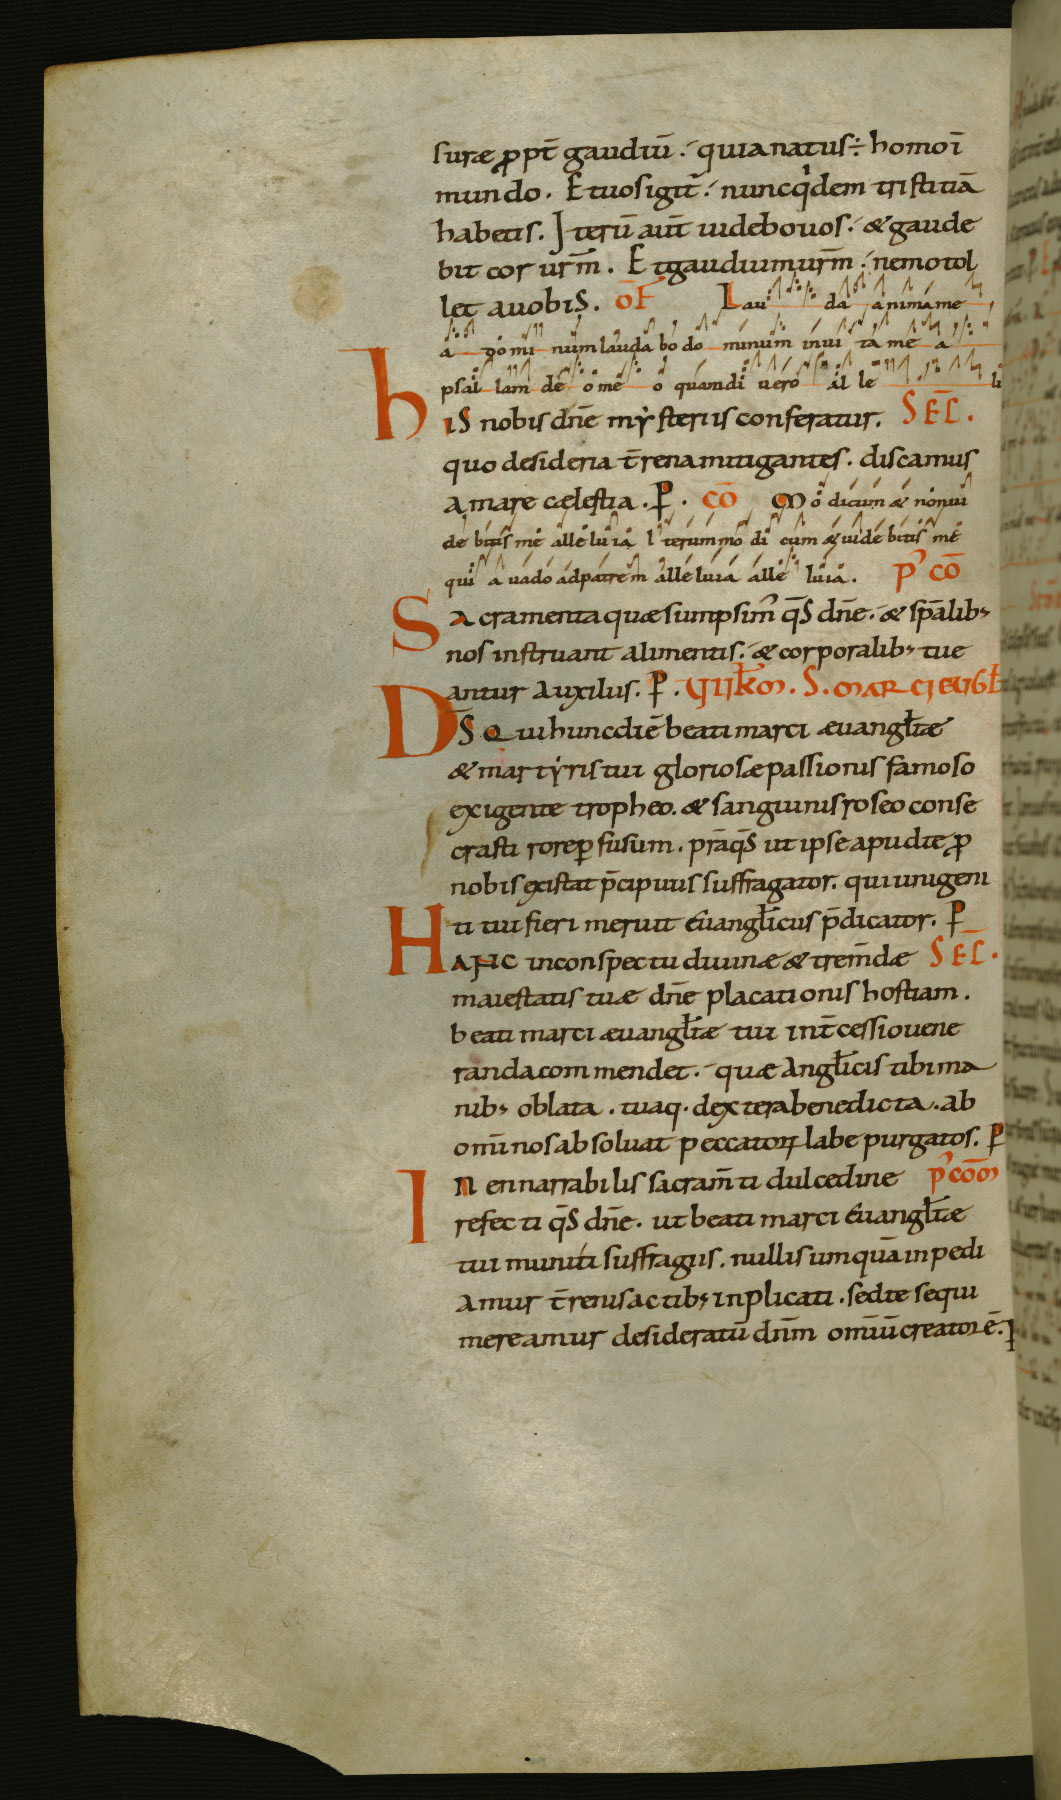 suræ ꝓpt̄ gaudiū. quia natus ÷ homo ī
mundo. Et uos igit̄. nunc q̇dem tristitiā
habetis. Iterū aut̄ uidebo uos. & gaude
bit cor ur̄m. Et gaudium ur̄m. nemo tol
let a uobis. ōF Lau da anima me
a do mi num laudabo do minum in ui ta me a
psal lam de o me o quamdi uero al le lu
HIS nobis dn̄e mẏsteriis conferatur. SEC̄.
quo desideria t̄rena mitigantes. discamus
amare cælestia. P. cō Modicum & non ui
debitis me alleluia Iterum modicum & uidebitis me
qui a uado ad patrem alleluia alle luia. P̓ cō
Sacramenta quæ sumpsim᷒ q̄s dn̄e. & sp̄alib;
nos instruant alimentis. & corporalib; tue
antur auxiliis. P. VII kl̄ m. S. MARCI EVGL̄
DS̄ Qui hunc diē beati marci æuangl̄iæ
& martẏris tui gloriosæ passionis famoso
exigente tropheo. & sanguinis roseo conse
crasti rore ꝑfusum. præq̄s ut ipse apud te ꝓ
nobis existat p̄cipuus suffragator. qui unigeni
ti tui fieri meruit Euangl̄icus p̄dicator. P
HANC in conspectu diuinæ & trem̄dæ SEC̄.
maiestatis tuæ dn̄e placationis hostiam.
beati marci æuangl̄iæ tui int̄cessio uene
randa commendet. quæ Angl̄icis tibi ma
nib; oblata. tuaq. dextera benedicta. ab
omi nos absoluat peccatoꝝ labe purgatos. P
IN ennarrabilis sacram̄ti dulcedine P̓ cōm
refecti q̄s dn̄e. ut beati marci Euangl̄iæ
tui muniti suffragiis. nullis umquā inpedi
amur t̄renis actib; inplicati. sed te sequi
mereamur desideratū dn̄m omiū creatorē. P